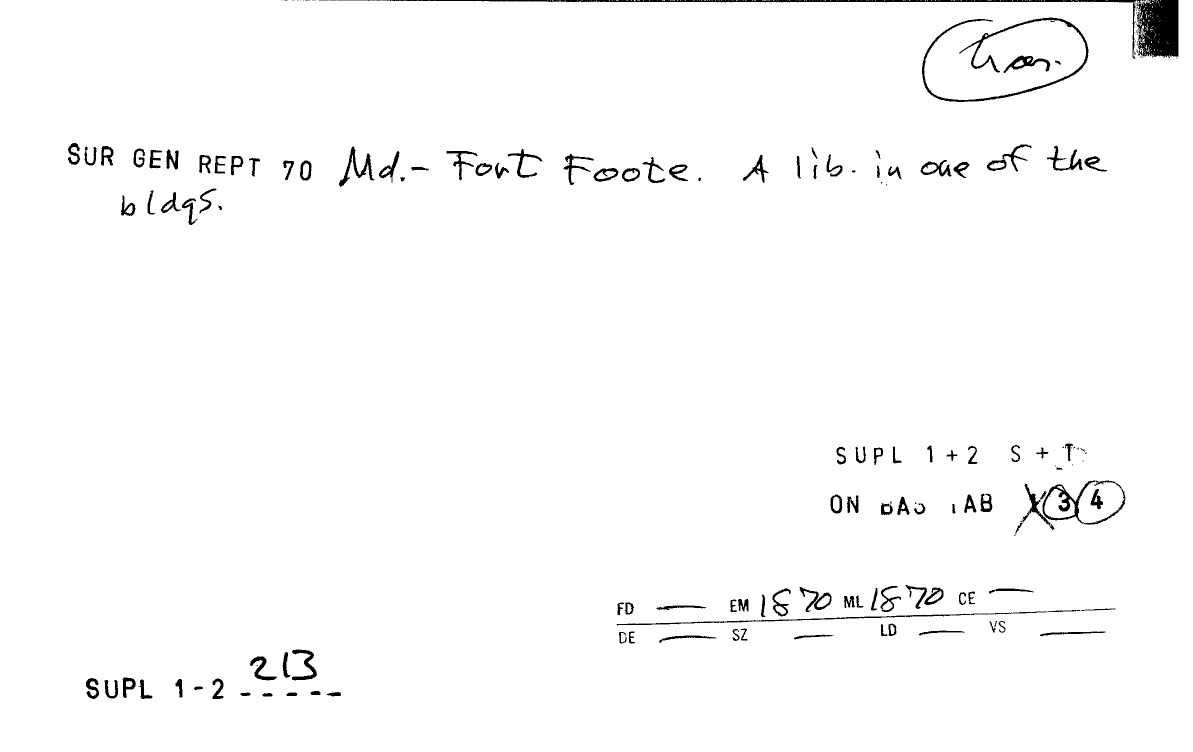 SUR GEN REPT 70 Md.- Fort Foote. A lib. in one of the
bldgs.
SUPL 1+2 S + T
ON BAS TAB 3 4
FD — EM 1870 ML 1870 CE —
DE — SZ — LD — VS —
213
SUPL 1-2 -----